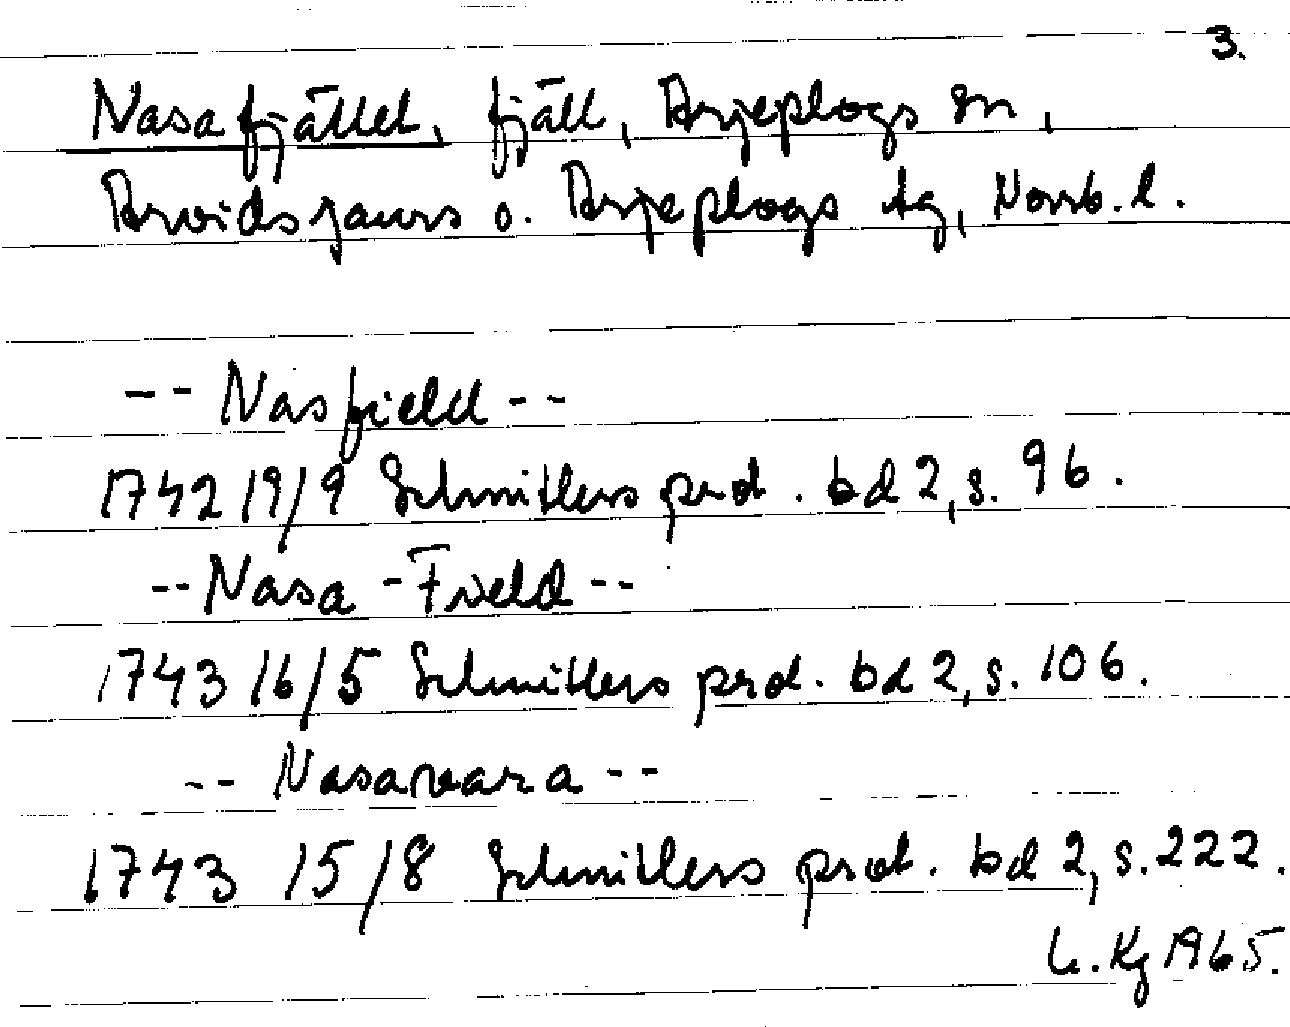 3.
Nasafjället, fjäll, Arjeplogs sn,
Arvidsjaurs o. Arjeplogs tg, Norrb. l.
-- Nasfield --
1742 19/9 Schnitlers prot. bd 2, s. 96.
-- Nasa-Field --
1743 16/5 Schnitlers prot. bd 2, s. 106.
-- Nasavara --
1743 15/8 Schnitlers prot. bd 2, s. 222.
Kg 1965.